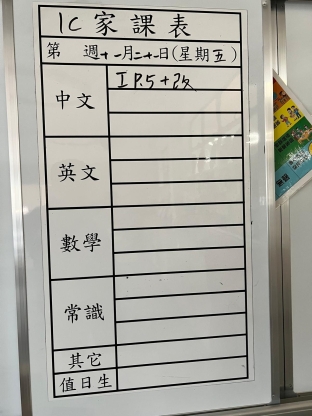 1C 家課表
第 週十一月二十一日(星期五)
中文 工 P.5 + 改
英文
數學
常識
其它
值日生